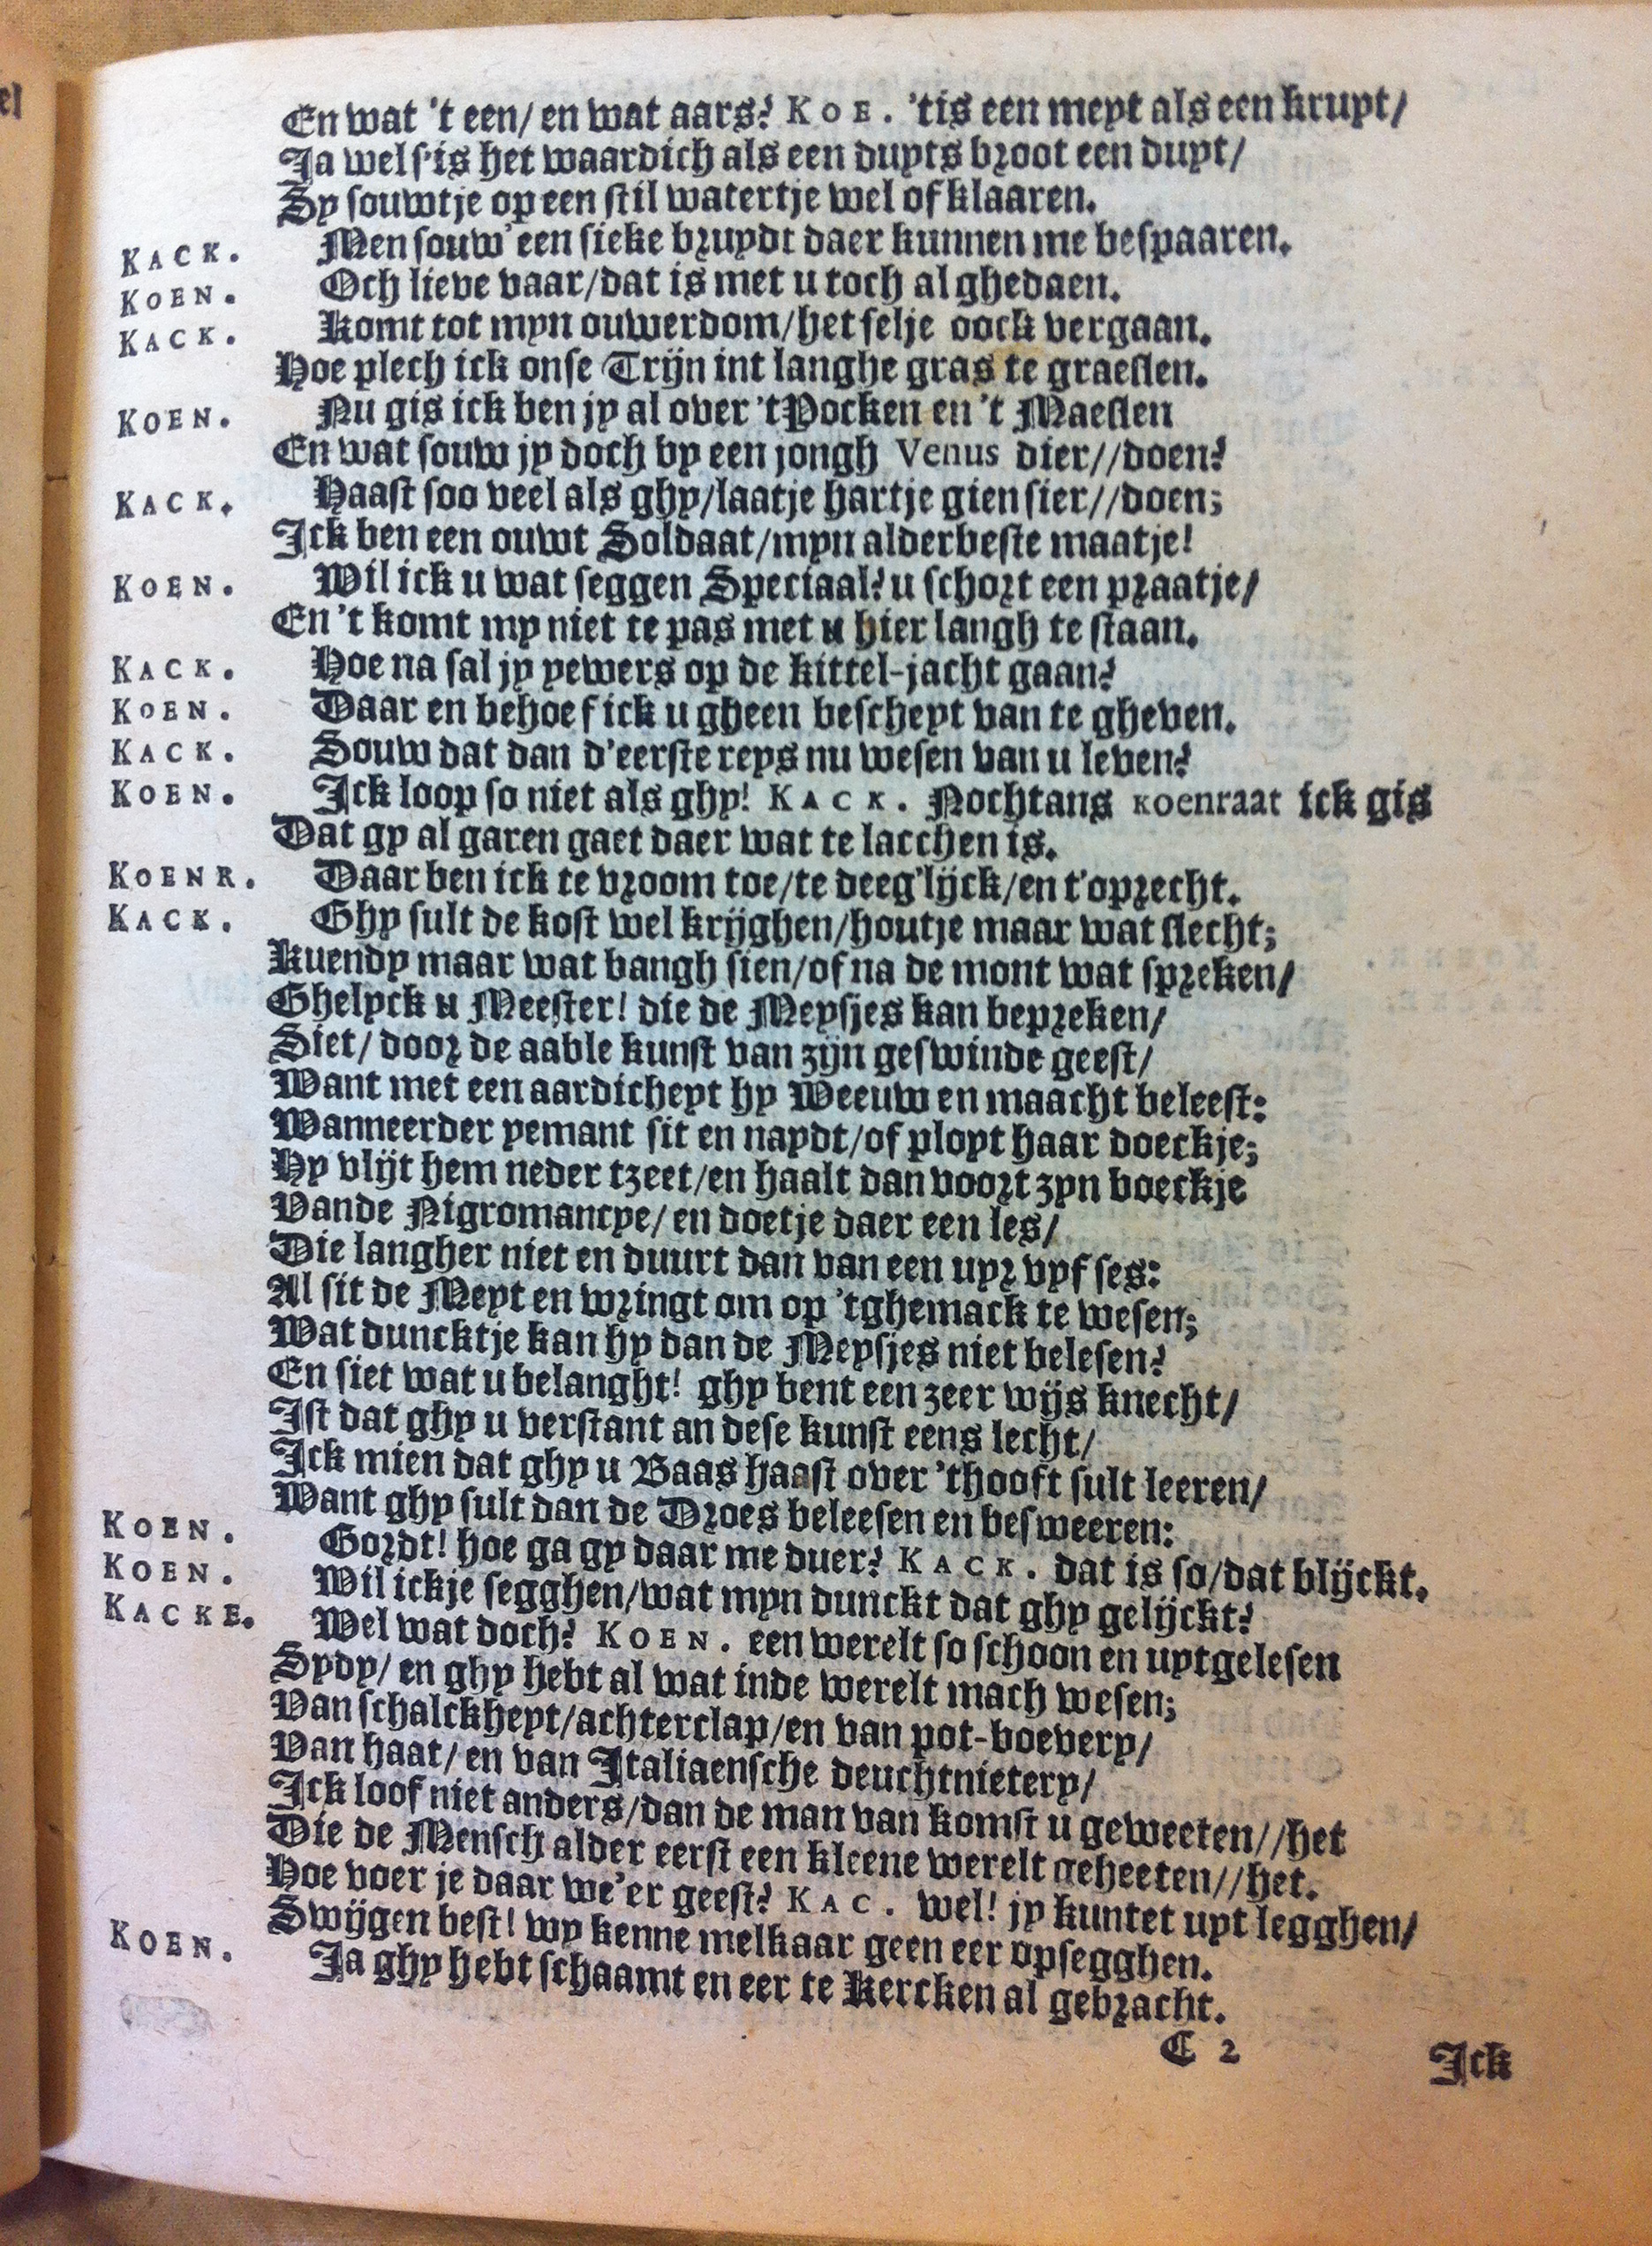 En wat 't een/ en wat aars? KOE. 'tis een meyt als een kruyt/
Ja wel s'is het waardich als een duyts broot een duyt/
Sy souwtje op een stil watertje wel of klaaren.
KACK. Men souw' een sieke bruydt daer kunnen me bespaaren.
KOEN. Och lieve vaar/dat is met u toch al ghedaen.
KACK. Komt tot myn ouwerdom/het selje oock vergaan.
Hoe plech ick onse Trijn int langhe gras te graesen.
KOEN. Nu gis ick ben jy al over 't Pocken en 't Maeslen
En wat souw jy doch by een jongh Venus dier//doen?
KACK. Haast soo veel als ghy/laatje hartje gien sier//doen;
Ick ben een ouwt Soldaat/myn alderbeste maatje!
KOEN. Wil ick u wat seggen Speciaal? u schort een praatje/
En 't komt my niet te pas met u hier langh te staan.
KACK. Hoe na sal jy yewers op de kittel-jacht gaan?
KOEN. Daar en behoef ick u gheen bescheyt van te gheven.
KACK. Souw dat dan d'eerste reys nu wesen van u leven?
KOEN. Ick loop so niet als ghy! KACK. Nochtans Koenraat ick gis
Dat gy al garen gaet daer wat te lacchen is.
KOENR. Daar ben ick te vroom toe/te deeg'lijck/en t'oprecht.
KACK. Ghy sult de kost wel krijghen/houtje maar wat slecht;
Kuendy maar wat bangh sien/of na de mont wat spreken/
Ghelyck u Meester! die de Meysjes kan bepreken/
Siet/ door de aable kunst van zijn geswinde geest/
Want met een aardicheyt hy Weeuw en maacht beleest:
Wanneerder yemant sit en naydt/of ployt haar doeckje;
Hy vlijt hem neder tzeet/en haalt dan voort zyn boeckje
Vande Nigromancye/ en doetje daer een les/
Die langher niet en duurt dan van een uyr vyf ses:
Al sit de Meyt en wringt om op 'tghemack te wesen;
Wat duncktje kan hy dan de Meysjes niet belesen?
En siet wat u belanght! ghy bent een zeer wijs knecht/
Ist dat ghy u verstant an dese kunst eens lecht/
Ick mien dat ghy u Baas haast over 'thooft sult leeren/
Want ghy sult dan de Droes beleesen en besweeren:
KOEN. Gordt! hoe ga gy daar me duer? KACK. dat is so/dat blijckt.
KOEN. Wil ickje segghen/wat myn dunckt dat ghy gelijckt?
KACKE. Wel wat doch? KOEN. een werelt so schoon en uytgelesen
Sydy/ en ghy hebt al wat inde werelt mach wesen;
Van schalckheyt/achterclap/en van pot-boevery/
Van haat/ en van Italiaensche deuchtnietery/
Ick loof niet anders/dan de man van komst u geweeten//het
Die de Mensch alder eerst een kleene werelt geheeten//het.
Hoe voer je daar we'er geest? KAC. wel! jy kuntet uyt legghen/
Swijgen best! wy kenne melkaar geen eer opsegghen.
KOEN. Ja ghy hebt schaamt en eer te Kercken al gebracht.
C 2 Ick